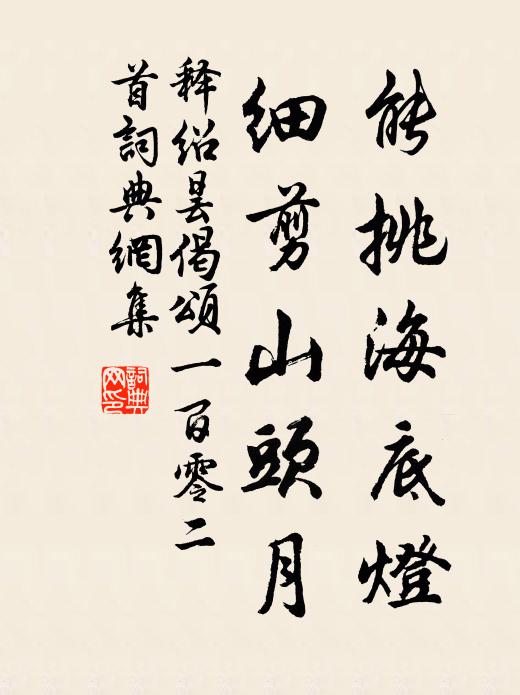 能挑海底燈
细剪山頭月
释绍昙偈頌一百零二
首詞典網集
詞典
网印